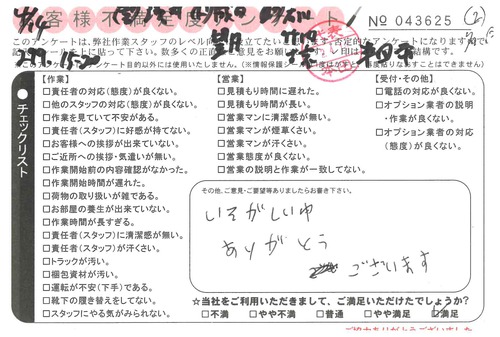 お客様不満足度アンケート
No 043625
(2)
このアンケートは、弊社作業スタッフのレベル向
【作業】
□責任者の対応(態度)が良くない。
□他のスタッフの対応(態度)が良くない。
□作業を見ていて不安がある。
□責任者(スタッフ)に好感が持てない。
□お客様への挨拶が出来ていない。
□ご近所への挨拶・気遣いが無い。
□作業開始前の内容確認がなかった。
□作業開始時間が遅れた。
□荷物の取り扱いが雑である。
□お部屋の養生が出来ていない。
□作業時間が長すぎる。
□責任者(スタッフ)に清潔感が無い。
□責任者(スタッフ)が汗くさい。
□トラックが汚い。
□梱包資材が汚い。
□運転が不安(下手)である。
□靴下の履き替えをしてない。
□スタッフにやる気がみられない。
【営業】
□見積もり時間に遅れた。
□見積もり時間が長い。
□営業マンに清潔感が無い。
□営業マンが煙草くさい。
□営業マンが汗くさい。
□営業態度が良くない。
□営業の説明と作業が一致してない。
【受付・その他】
□電話の対応が良くない。
□オプション業者の説明
・作業が良くない。
□オプション業者の対応
(態度)が良くない。
チェックリスト
その他、ご意見・ご要望等ありましたらお書き下さい。
いそがしい中
ありがとう
ございます
☆当社をご利用いただきまして、ご満足いただけたでしょうか?
□不満 □やや不満 □普通 □やや満足 □満足
ご協力ありがとうございました